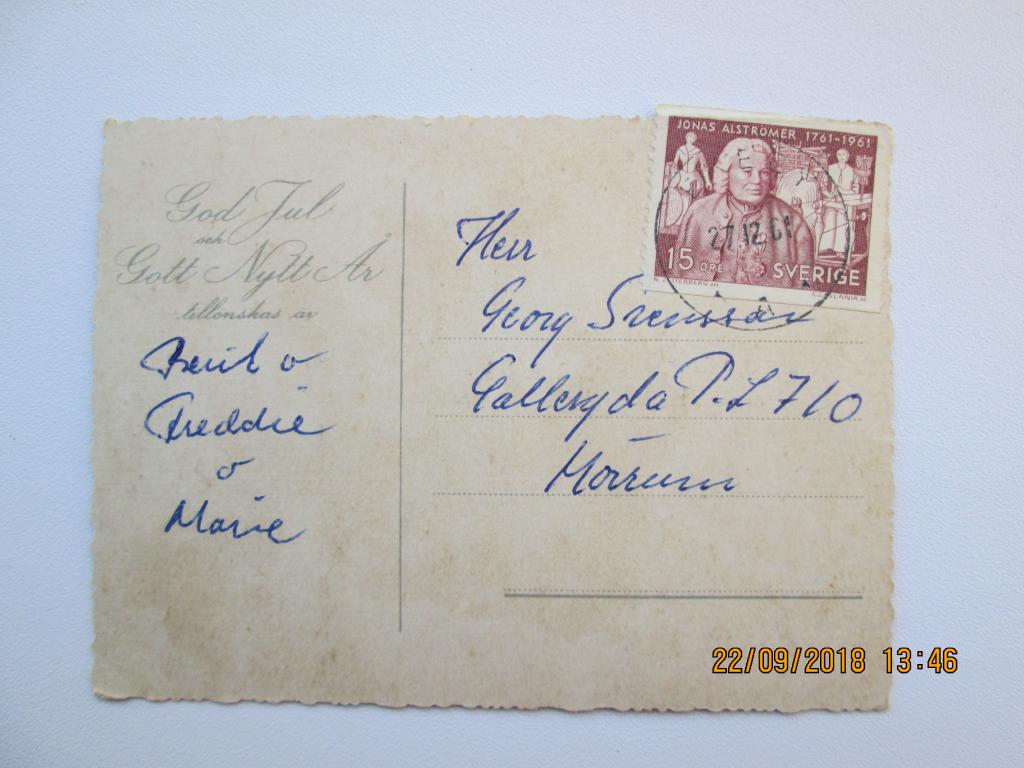 God Jul
och
Gott Nytt År
tillönskas av
Berit o
Freddie
o
Marie
JONAS ALSTRÖMER 1761-1961
27.12.61
15 ÖRE SVERIGE
CZ. SLANIA SC
Herr
Georg Svensson
Galleryda P.L 710
Mörrum
22/09/2018 13:46